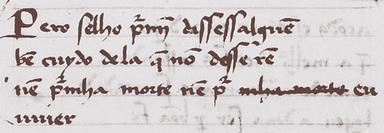 Pero sẽlho p̃mỹ dissess alguẽ
bẽ cuydo dela q̃ nõ desse rẽ
nẽ p̃ mha morte nẽ p̃ mha morte eu
uiuer